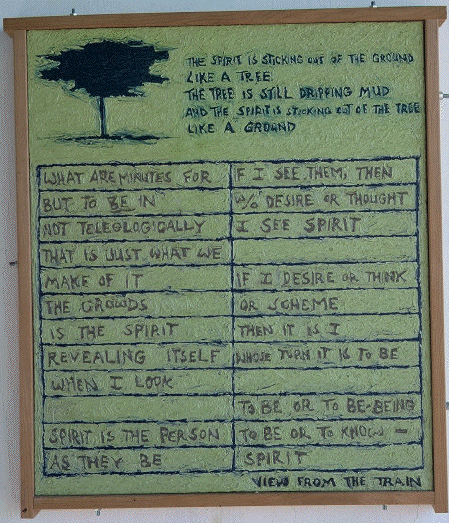 THE SPIRIT IS STICKING OUT OF THE GROUND
LIKE A TREE.
THE TREE IS STILL DRIPPING MUD
AND THE SPIRIT IS STICKING OUT OF THE TREE
LIKE A GROUND
WHAT ARE MINUTES FOR
BUT TO BE IN
NOT TELEOLOGICALLY
THAT IS JUST WHAT WE
MAKE OF IT
THE CROWDS
IS THE SPIRIT
REVEALING ITSELF
WHEN I LOOK
SPIRIT IS THE PERSON
AS THEY BE
IF I SEE THEM, THEN
W/O DESIRE OR THOUGHT
I SEE SPIRIT
IF I DESIRE OR THINK
OR SCHEME
THEN IT IS I
WHOSE TURN IT IS TO BE
TO BE OR TO BE-BEING
TO BE OR TO KNOW -
SPIRIT
VIEW FROM THE TRAIN